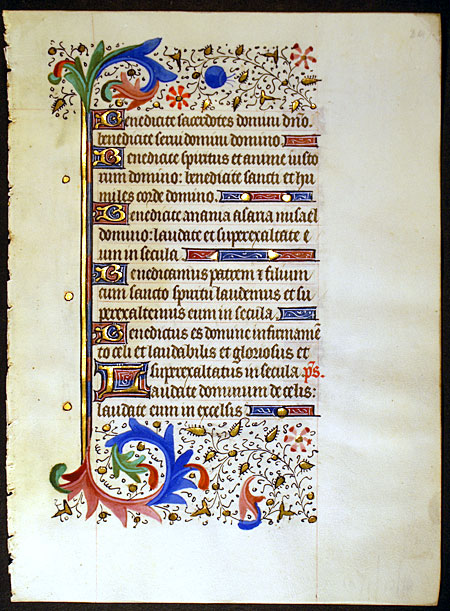 Benedicite sacerdotes domini dno.
benedicite servi domini domino.
Benedicite spiritus et anime iusto
rum domino: benedicite sancti et hu
miles corde domino.
Benedicite anania asaria misael
domino: laudate et superexaltate e
um in secula.
Benedicamus patrem et filium
cum sancto spiritu laudemus et su
perexaltemus eum in secula.
Benedictus es domine in firmamē
to celi et laudabilis et gloriosus et
superexaltatus in secula. ps.
Laudate dominum de celis:
laudate eum in excelsis